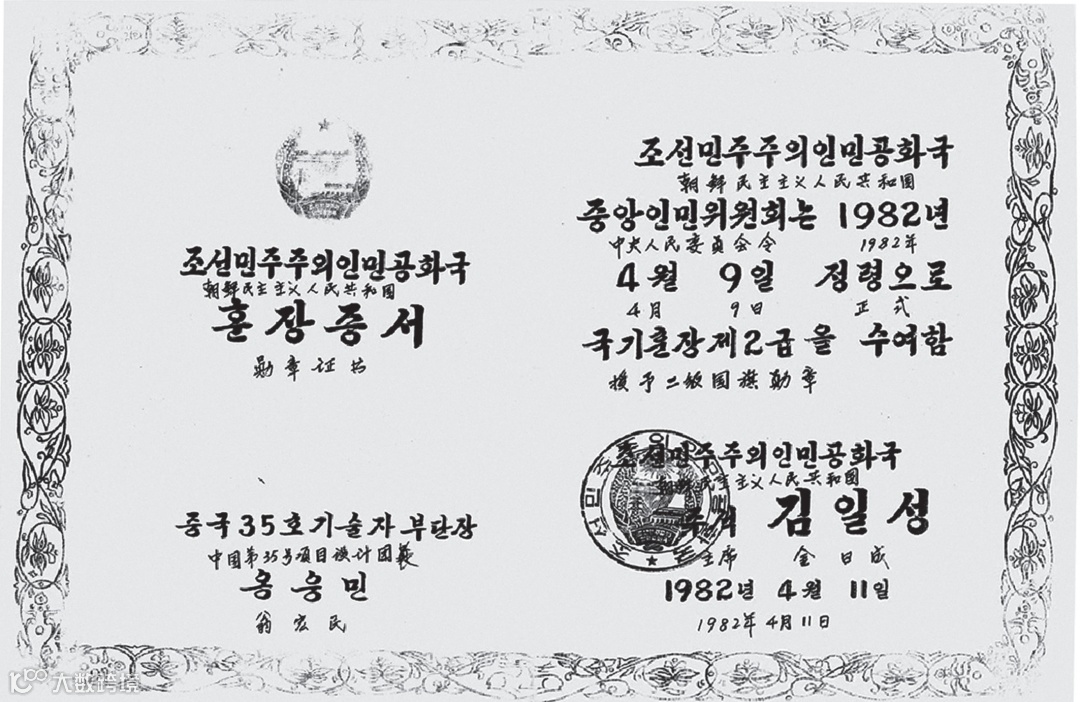 조선민주주의인민공화국
朝鲜民主主义人民共和国
훈장증서
勋章证书
중국35호기술자부단장
中国第35号项目设计团
옹웅민
翁宏民
조선민주주의인민공화국
朝鲜民主主义人民共和国
중앙인민위원회는 1982년
中央人民委员会令 1982年
4월 9일 정령으로
4月 9日 正式
국기훈장제2급을 수여함
授予二级国旗勋章
조선민주주의인민공화국
朝鲜民主主义人民共和国
주석 김일성
主席 金日成
1982년 4월 11일
1982年4月11日
大数跨境